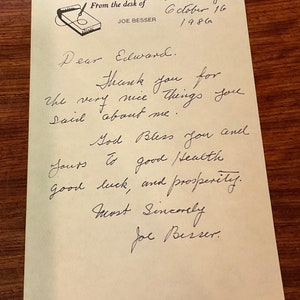 From the desk of
JOE BESSER
October 16
1986
Dear Edward.
Thank you for
the very nice things you
said about me.
God Bless you and
yours to good Health
good luck, and prosperity.
Most Sincerely
Joe Besser.